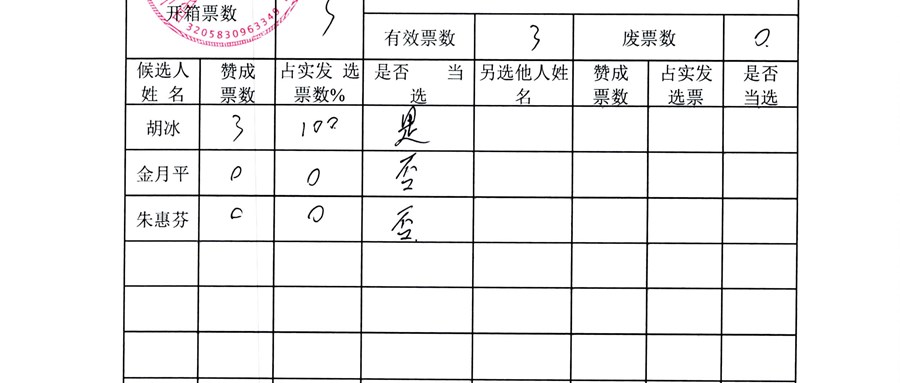 3205830963349
开箱票数 3
有效票数 3 废票数 0
候选人 赞成 占实发 选 是否 当 另选他人姓 赞成 占实发 是否
姓 名 票数 票数% 选 名 票数 选票 当选
胡冰 3 100 是
金月平 0 0 否
朱惠芬 0 0 否